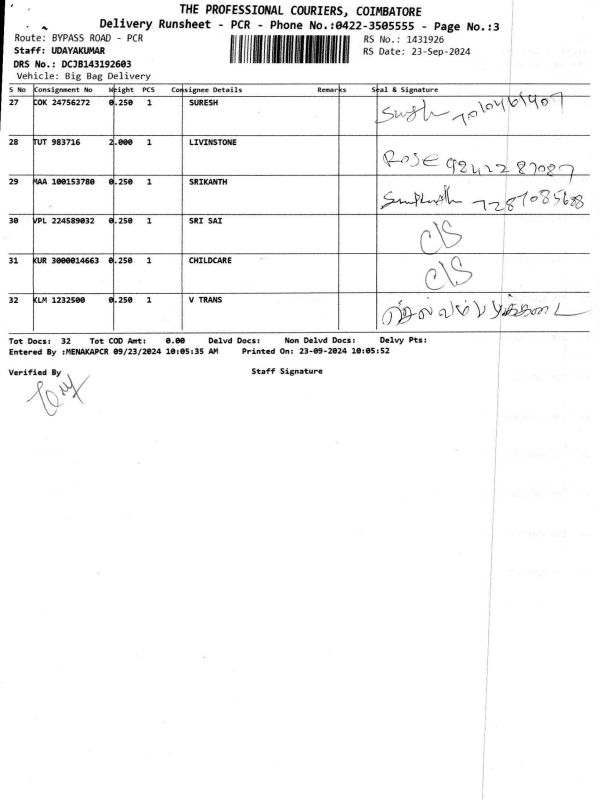 THE PROFESSIONAL COURIERS, COIMBATORE
Delivery Runsheet - PCR - Phone No.:0422-3505555 - Page No.:3
Route: BYPASS ROAD - PCR
RS No.: 1431926
Staff: UDAYAKUMAR
RS Date: 23-Sep-2024
DRS No.: DCJB143192603
Vehicle: Big Bag Delivery
S No Consignment No Weight PCS Consignee Details Remarks Seal & Signature
27 COK 24756272 0.250 1 SURESH
28 TUT 983716 2.000 1 LIVINSTONE ROSE
29 MAA 100153780 0.250 1 SRIKANTH
30 VPL 224589032 0.250 1 SRI SAI C/S
31 KUR 3000014663 0.250 1 CHILDCARE C/S
32 KLM 1232500 0.250 1 V TRANS
Tot Docs: 32 Tot COD Amt: 0.00 Delvd Docs: Non Delvd Docs: Delvy Pts:
Entered By :MENAKAPCR 09/23/2024 10:05:35 AM Printed On: 23-09-2024 10:05:52
Verified By Staff Signature